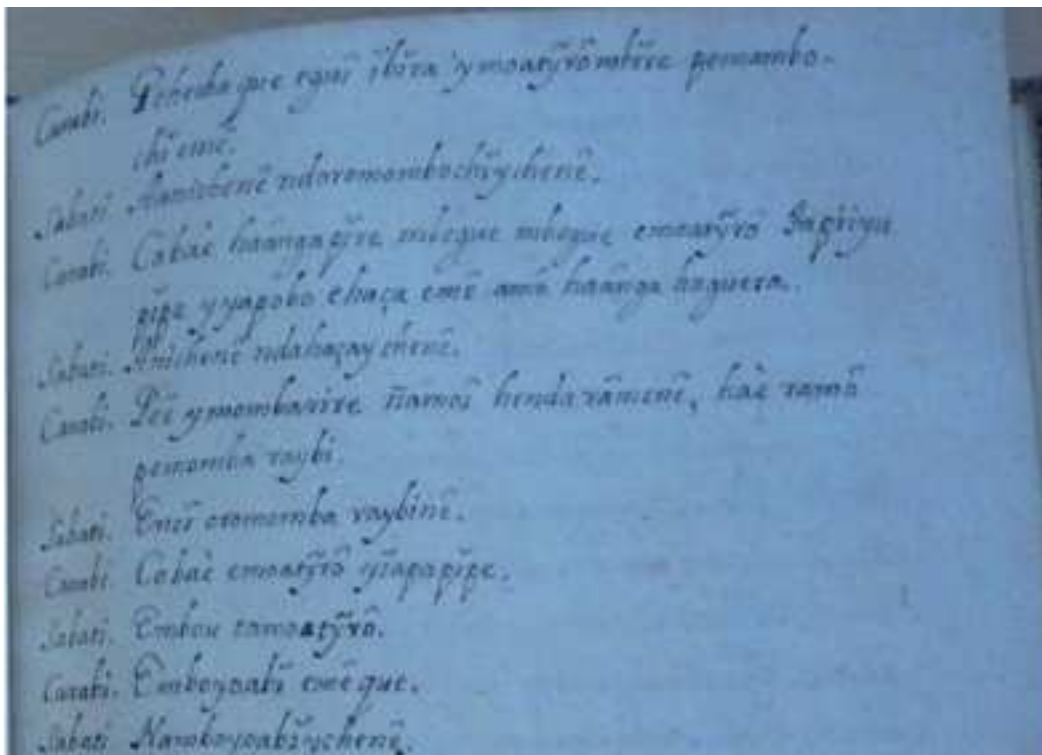 Carabi. Pehecha que egui ĭbĭra ymoatỹrõmbĭre pemombo-
chĭ emẽ.
Sabati. Aanichenẽ ndoromombochĭychenẽ.
Carabi. Cobaè haângapĭre mbegue mbegue emoatỹrõ
pĭpe yyapobo ehaça emẽ amõ haânga haguera.
Sabati. Anichenẽ ndahaçaychenẽ.
Carabi. Peẽ ymombarire ñamoî hendarâmenẽ, haè ramõ
pemomba raybi.
Sabati. Eneĭ oromomba raybinẽ.
Carabi. Cobaè emoatỹrõ pĭpe.
Sabati. Embou tamoatỹrõ.
Carabi. Emboyoabĭ emẽ que.
Sabati. Namboyoabĭychenẽ.